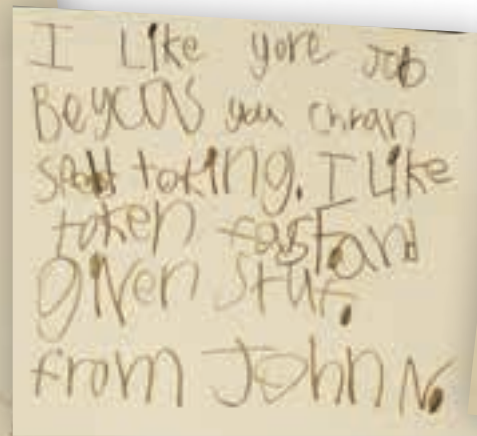 I Like yore JOB
BeycUS you chran
toking. I Like
token fast and
given stuf.
from John N.